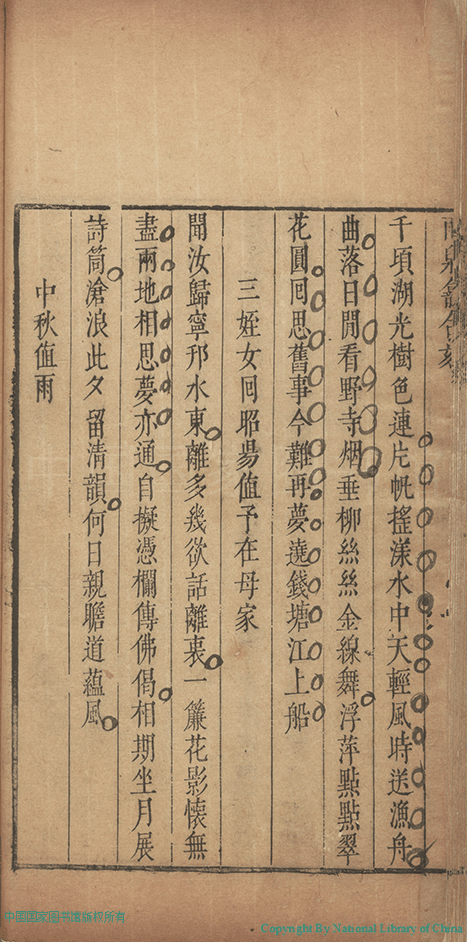 千頃湖光樹色連片帆搖漾水中天輕風時送漁舟
曲落日閒看野寺烟垂柳絲絲金線舞浮萍點點翠
花圓囘思舊事今難再夢遶錢塘江上船
三姪女囘昭昜值予在母家
聞汝歸寧邗水東離多幾欲話離衷一簾花影懷無
盡兩地相思夢亦通自擬憑欄傳佛偈相期坐月展
詩筒滄浪此夕留清韻何日親瞻道蘊風
中秋值雨
中国国家图书馆版权所有
Copyright By National Library of China